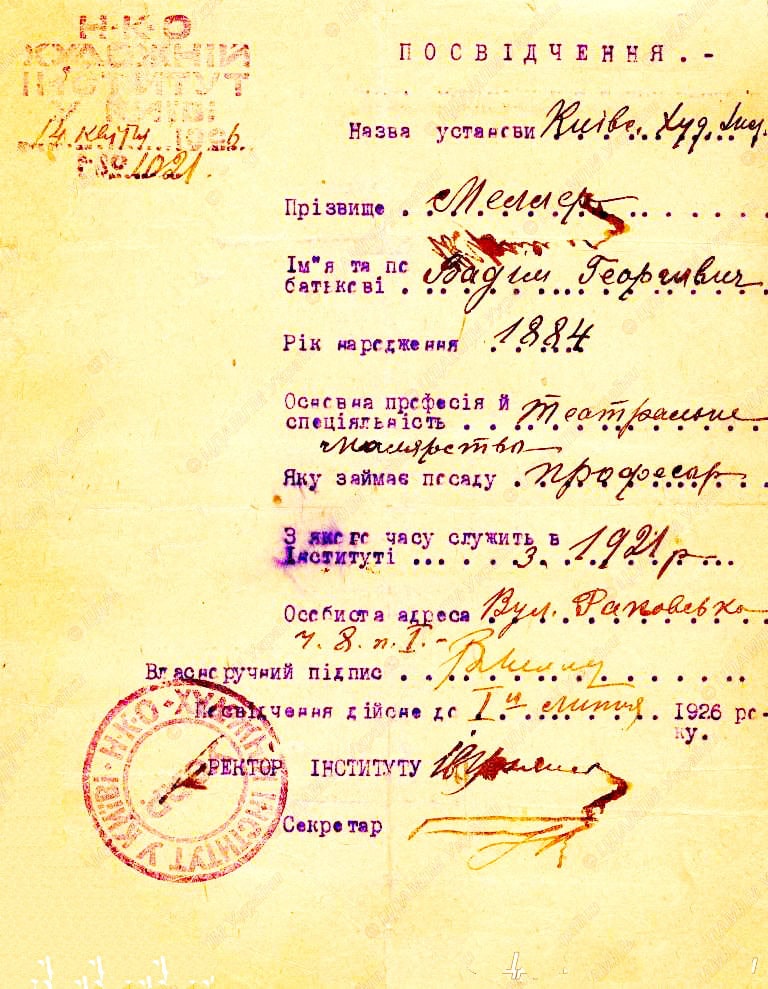 Н·К·О
ХУДОЖНІЙ
ІНСТИТУТ
У КИЇВІ
14 квітн 1926.
№ 1021.
ПОСВІДЧЕННЯ.-
Назва установи Київс. Худ. Інс.
Прізвище . Меллер
Ім"я та по
батькові . Вадим Георгієвич
Рік народження 1884
Основна професія й
спеціяльність . . Театральне
малярство
Яку займає посаду . професор
З якого часу служить в
Інституті ... з. 1921 р
Особиста адреса Вул. Раковсько
ч. 8. п. I. -
Власноручний підпис . .
Посвідчення дійсне до 1го липня . . 1926 ро-
ку.
РЕКТОР ІНСТИТУТУ
Секретар
Н·К·О·ХУДОЖНІЙ ІНСТИТУТ У КИЇВІ·